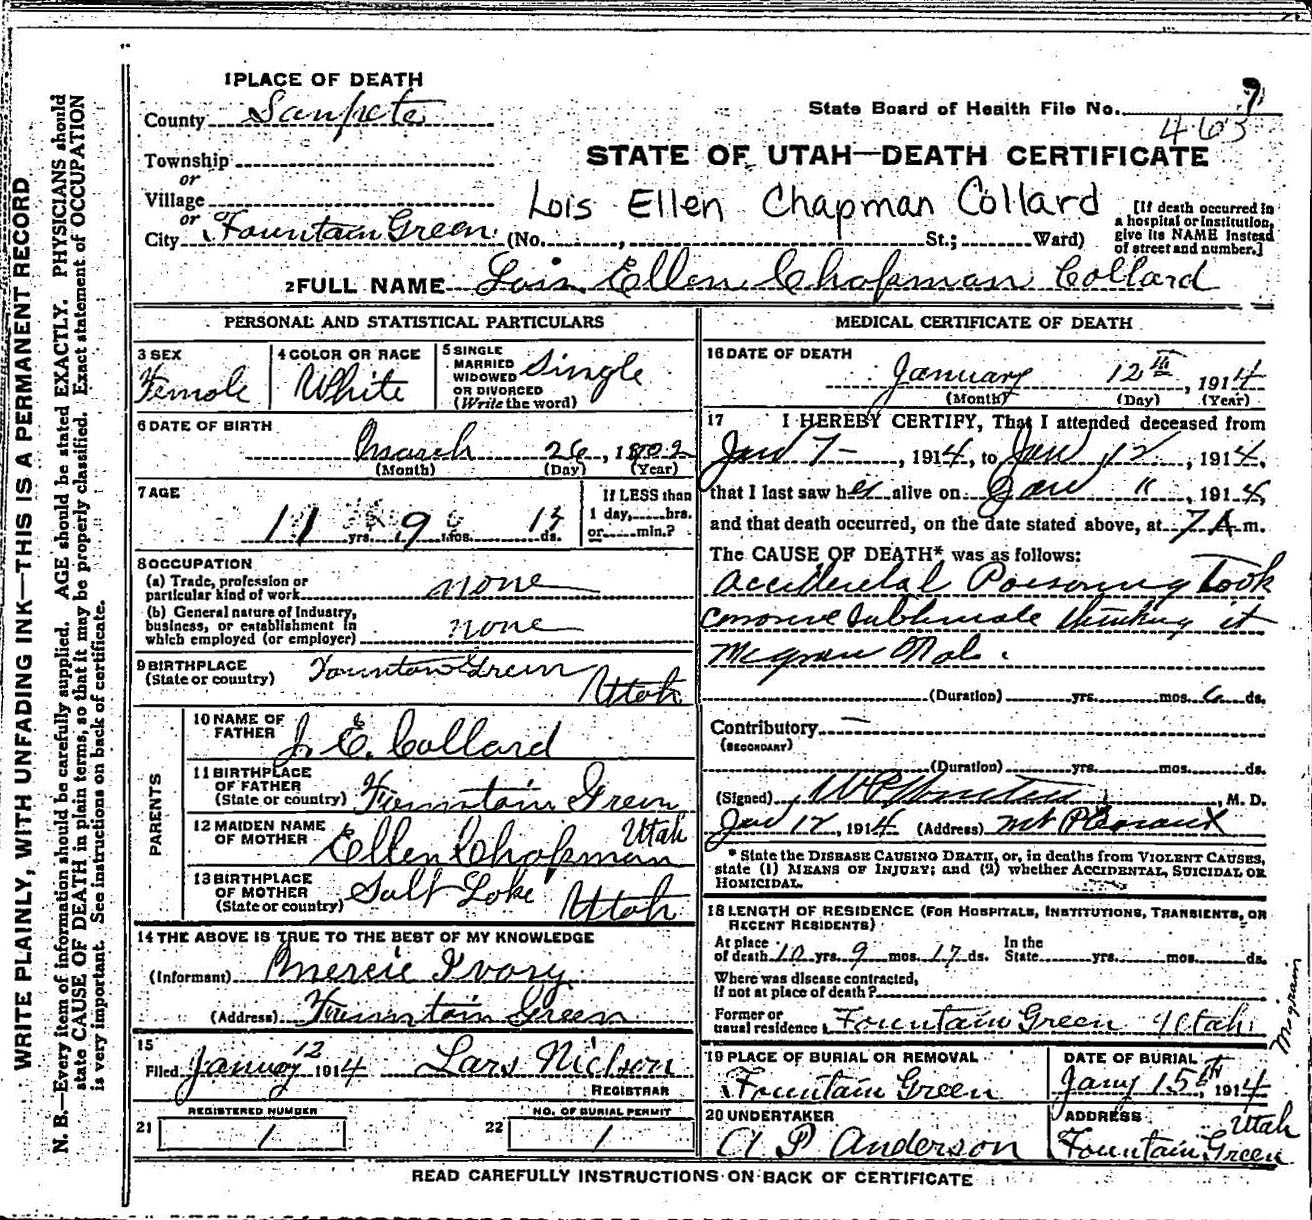 1 PLACE OF DEATH
County Sanpete
State Board of Health File No. 9
463
Township
or
Village
or
City Fountain Green (No. , St.; Ward)
STATE OF UTAH—DEATH CERTIFICATE
Lois Ellen Chapman Collard
[If death occurred in
a hospital or institution,
give its NAME instead
of street and number.]
2 FULL NAME Lois Ellen Chapman Collard
PERSONAL AND STATISTICAL PARTICULARS
3 SEX
Female
4 COLOR OR RACE
White
5 SINGLE
MARRIED
WIDOWED
OR DIVORCED
(Write the word)
Single
6 DATE OF BIRTH
March 26, 1902
(Month) (Day) (Year)
7 AGE
11 yrs. 9 mos. 15 ds.
If LESS than
1 day, hrs.
or min.?
8 OCCUPATION
(a) Trade, profession or
particular kind of work none
(b) General nature of Industry,
business, or establishment in
which employed (or employer) none
9 BIRTHPLACE
(State or country) Fountain Green
Utah
PARENTS
10 NAME OF
FATHER J. E. Collard
11 BIRTHPLACE
OF FATHER
(State or country) Fountain Green
Utah
12 MAIDEN NAME
OF MOTHER Ellen Chapman
13 BIRTHPLACE
OF MOTHER
(State or country) Salt Lake Utah
14 THE ABOVE IS TRUE TO THE BEST OF MY KNOWLEDGE
(Informant) Mercie Ivory
(Address) Fountain Green
15
Filed January 12 1914 Lars Nielson
REGISTRAR
REGISTERED NUMBER
21 1
NO. OF BURIAL PERMIT
22 1
MEDICAL CERTIFICATE OF DEATH
16 DATE OF DEATH
January 12th, 1914
(Month) (Day) (Year)
17 I HEREBY CERTIFY, That I attended deceased from
Jan 7 , 1914, to Jan 12, 1914,
that I last saw her alive on Jan " , 1914,
and that death occurred, on the date stated above, at 7 A m.
The CAUSE OF DEATH* was as follows:
Accidental Poisoning Took
corrosive sublimate thinking it
(Duration) yrs. mos. 6 ds.
Contributory —
(SECONDARY)
(Duration) yrs. mos. ds.
(Signed) , M. D.
Jan 12, 1914 (Address) Mt Pleasant
* State the DISEASE CAUSING DEATH, or, in deaths from VIOLENT CAUSES,
state (1) MEANS OF INJURY; and (2) whether ACCIDENTAL, SUICIDAL OR
HOMICIDAL.
18 LENGTH OF RESIDENCE (FOR HOSPITALS, INSTITUTIONS, TRANSIENTS, OR
RECENT RESIDENTS)
At place
of death 10 yrs. 9 mos. 17 ds.
In the
State yrs. mos. ds.
Where was disease contracted,
If not at place of death?
Former or
usual residence Fountain Green Utah
19 PLACE OF BURIAL OR REMOVAL
Fountain Green
DATE OF BURIAL
Jany 15th, 1914
20 UNDERTAKER
A P Anderson
ADDRESS
Utah
Fountain Green
READ CAREFULLY INSTRUCTIONS ON BACK OF CERTIFICATE
WRITE PLAINLY, WITH UNFADING INK—THIS IS A PERMANENT RECORD
N. B.—Every item of information should be carefully supplied. AGE should be stated EXACTLY. PHYSICIANS should
state CAUSE OF DEATH in plain terms, so that it may be properly classified. Exact statement of OCCUPATION
is very important. See instructions on back of certificate.